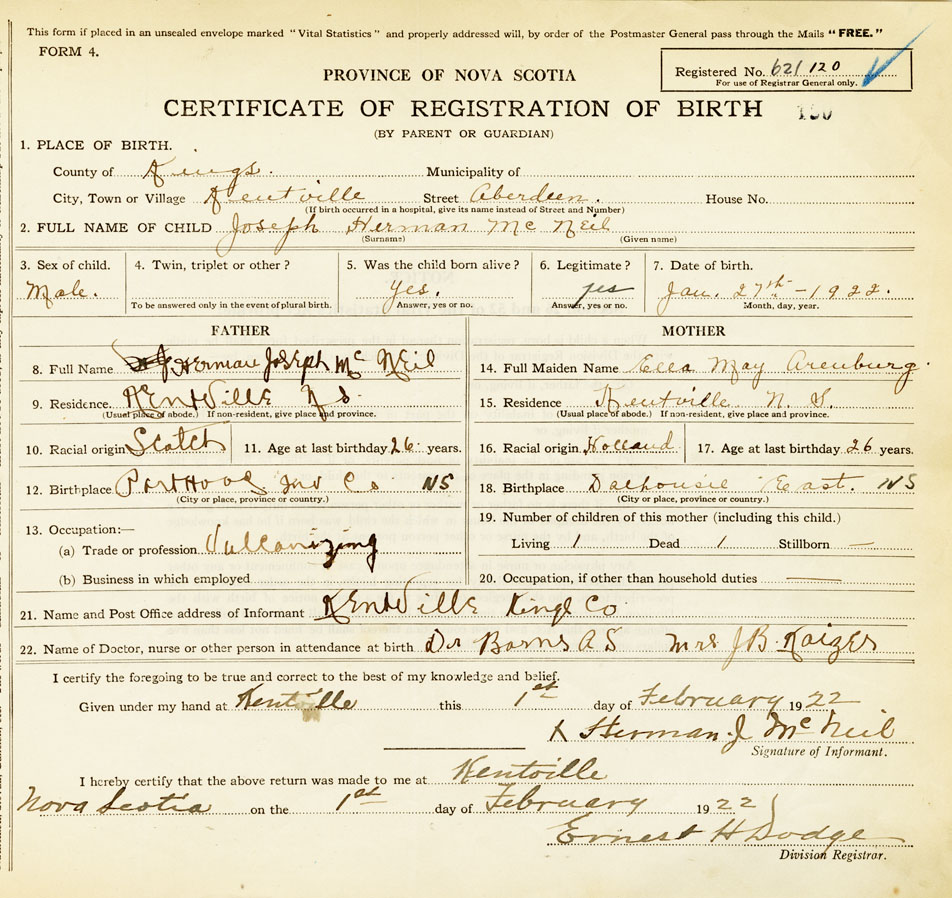 This form if placed in an unsealed envelope marked "Vital Statistics" and properly addressed will, by order of the Postmaster General pass through the Mails "FREE."
FORM 4.
Registered No. 621 120
For use of Registrar General only.
PROVINCE OF NOVA SCOTIA
CERTIFICATE OF REGISTRATION OF BIRTH
(BY PARENT OR GUARDIAN)
1. PLACE OF BIRTH.
County of Kings. Municipality of
City, Town or Village Kentville Street Aberdeen. House No.
(If birth occurred in a hospital, give its name instead of Street and Number)
2. FULL NAME OF CHILD Joseph Herman Mc Neil
(Surname) (Given name)
3. Sex of child. 4. Twin, triplet or other? 5. Was the child born alive? 6. Legitimate? 7. Date of birth.
Male. Yes. yes Jan. 27th - 1922.
To be answered only in the event of plural birth. Answer, yes or no. Answer, yes or no. Month, day, year.
FATHER MOTHER
8. Full Name Herman Joseph Mc Neil 14. Full Maiden Name Ella May Arenburg.
9. Residence. Kentville N S. 15. Residence Kentville N. S.
(Usual place of abode.) If non-resident, give place and province. (Usual place of abode.) If non-resident, give place and province.
10. Racial origin Scotch 11. Age at last birthday 26 years. 16. Racial origin Holland 17. Age at last birthday 26 years.
12. Birthplace Port Hood Inv Co NS 18. Birthplace Dalhousie East. NS
(City or place, province or country.) (City or place, province or country.)
13. Occupation:— 19. Number of children of this mother (including this child.)
(a) Trade or profession Vulcanizing Living 1 Dead 1 Stillborn —
(b) Business in which employed 20. Occupation, if other than household duties —
21. Name and Post Office address of Informant Kentville Kings Co
22. Name of Doctor, nurse or other person in attendance at birth Dr Barns A S Mrs J B Kaizer
I certify the foregoing to be true and correct to the best of my knowledge and belief.
Given under my hand at Kentville this 1st day of February 1922
X Herman J Mc Neil
Signature of Informant.
I hereby certify that the above return was made to me at Kentville
Nova Scotia on the 1st day of February 1922
Ernest H Dodge
Division Registrar.